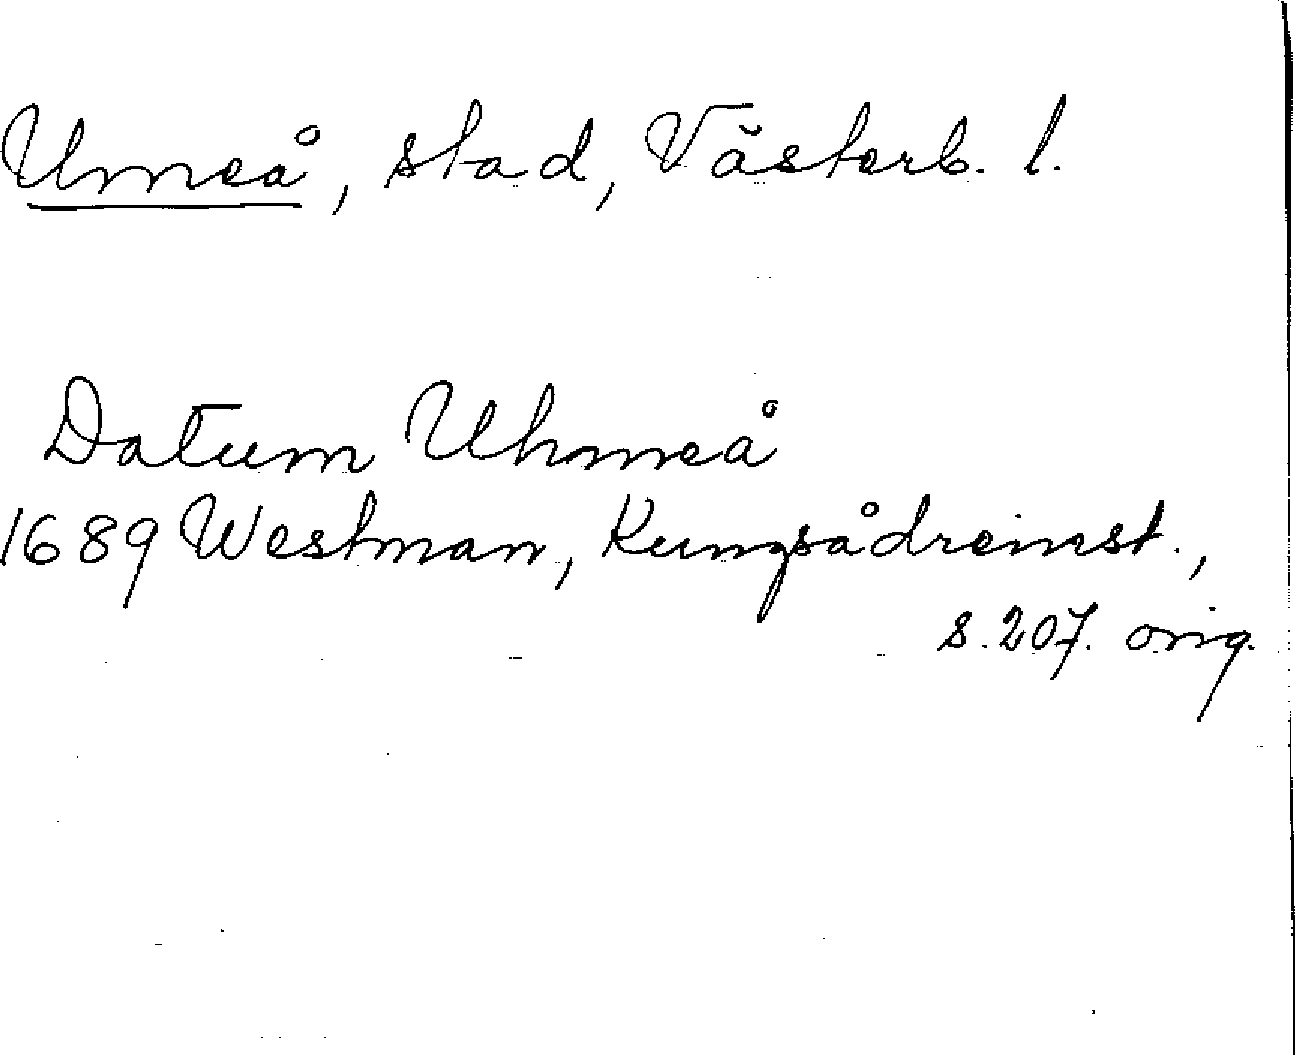 Umeå, stad, Västerb. l.
Datum Uhmeå
1689 Westman, Kungsådreinst.,
s. 207. orig.